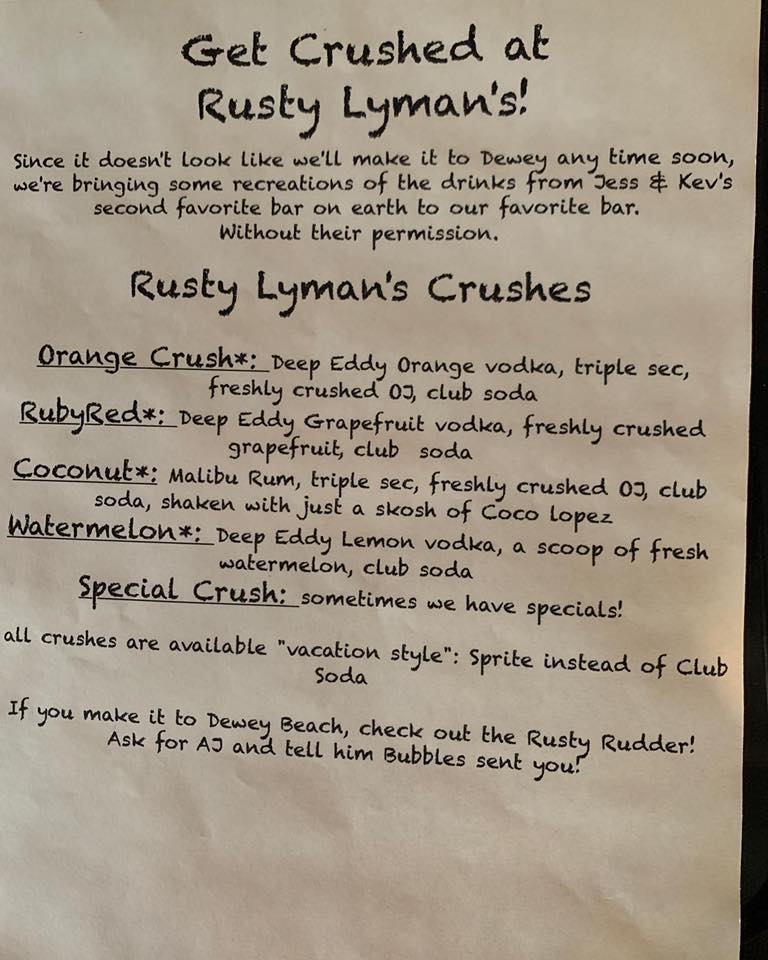 Get Crushed at
Rusty Lyman's!
Since it doesn't look like we'll make it to Dewey any time soon,
we're bringing some recreations of the drinks from Jess & Kev's
second favorite bar on earth to our favorite bar.
Without their permission.
Rusty Lyman's Crushes
Orange Crush*: Deep Eddy Orange vodka, triple sec,
freshly crushed OJ, club soda
RubyRed*: Deep Eddy Grapefruit vodka, freshly crushed
grapefruit, club soda
Coconut*: Malibu Rum, triple sec, freshly crushed OJ, club
soda, shaken with just a skosh of Coco lopez
Watermelon*: Deep Eddy Lemon vodka, a scoop of fresh
watermelon, club soda
Special Crush: sometimes we have specials!
all crushes are available "vacation style": Sprite instead of Club
Soda
If you make it to Dewey Beach, check out the Rusty Rudder!
Ask for AJ and tell him Bubbles sent you!